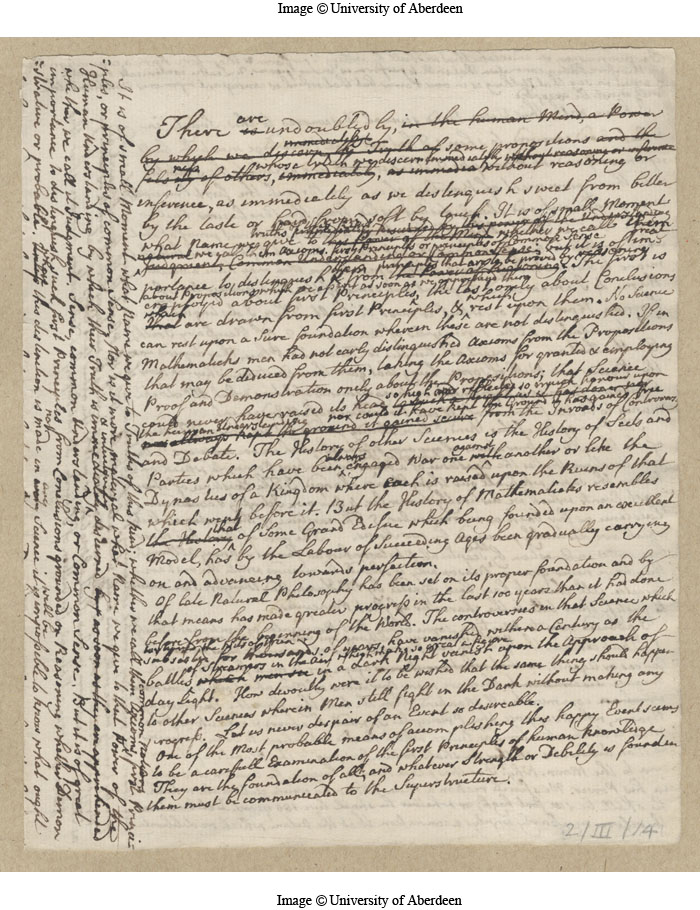 Image © University of Aberdeen
There are undoubtedly, in the human Mind, a Power
by which we discern immediately the Truth of some propositions and the
falsity of others, immediately, as immedia without reasoning or
inference, as immediately as we distinguish sweet from bitter
by the taste or hard from soft by touch. It is of small Moment
what Name we give to
portance to distinguish from The first is
about Propositions which
employed about first Principles, the last only about Conclusions
which are drawn from first Principles, & which rest upon them. No Science
can rest upon a Sure foundation wherein these are not distinguished. If in
Mathematicks men had not early distinguished Axioms from the Propositions
that may be deduced from them, taking the Axioms for granted & employing
Proof and Demonstration only about the Propositions; that Science
could never have raised its head so high and reflected so much honour upon
the human Understanding nor could it have kept the Ground it has gained free
from the Inroads of Controversy
and Debate. The History of other Sciences is the History of Sects and
Parties which have been always engaged War one against another or like the
Dynasties of a Kingdom where each is raised upon the Ruins of that
which went before it. But the History of Mathematicks resembles
the History that of Some Grand Edifice which being founded upon an excellent
Model, has by the Labour of Succeeding Ages been gradually carrying
on and advancing towards perfection.
Of late Natural Philosophy has been set on its proper foundation and by
that means has made greater progress in the last 100 years than it had done
before from the beginning of the World. The controversies in that Science which
subsisted for thousands of years, have vanished within a Century as the
battles of Streamers in the Air which make so great a figure
which in a dark Night vanish upon the Approach of
day light. How devoutly were it to be wished that the same thing should happen
to other Sciences wherein Men still fight in the Dark without making any
progress. Let us never despair of an Event so desireable.
One of the Most probable means of accomplishing this happy Event seems
to be a carefull Examination of the first Principles of human Knowledge
They are the foundation of all, and whatever Strength or Debility is found in
them must be communicated to the Superstructure.
It is of small Moment what Name we give to Truths of this kind; whether we call them Axioms, first Princi-
-ples, or principles of common Sense, Nor is it more material what Name we give to that Power of the
Human Understanding by which their Truth is immediately & intuitively discerned as soon as they are apprehended
whether we call it Judgment. Sense, common Understanding, or Common Sense. But it is of great
importance to distinguish first Principles from Conclusions grounded on Reasoning whether Demon
-strative or probable. this distinction is not made in any Science it will be impossible to know what ought
2/III/14
Image © University of Aberdeen